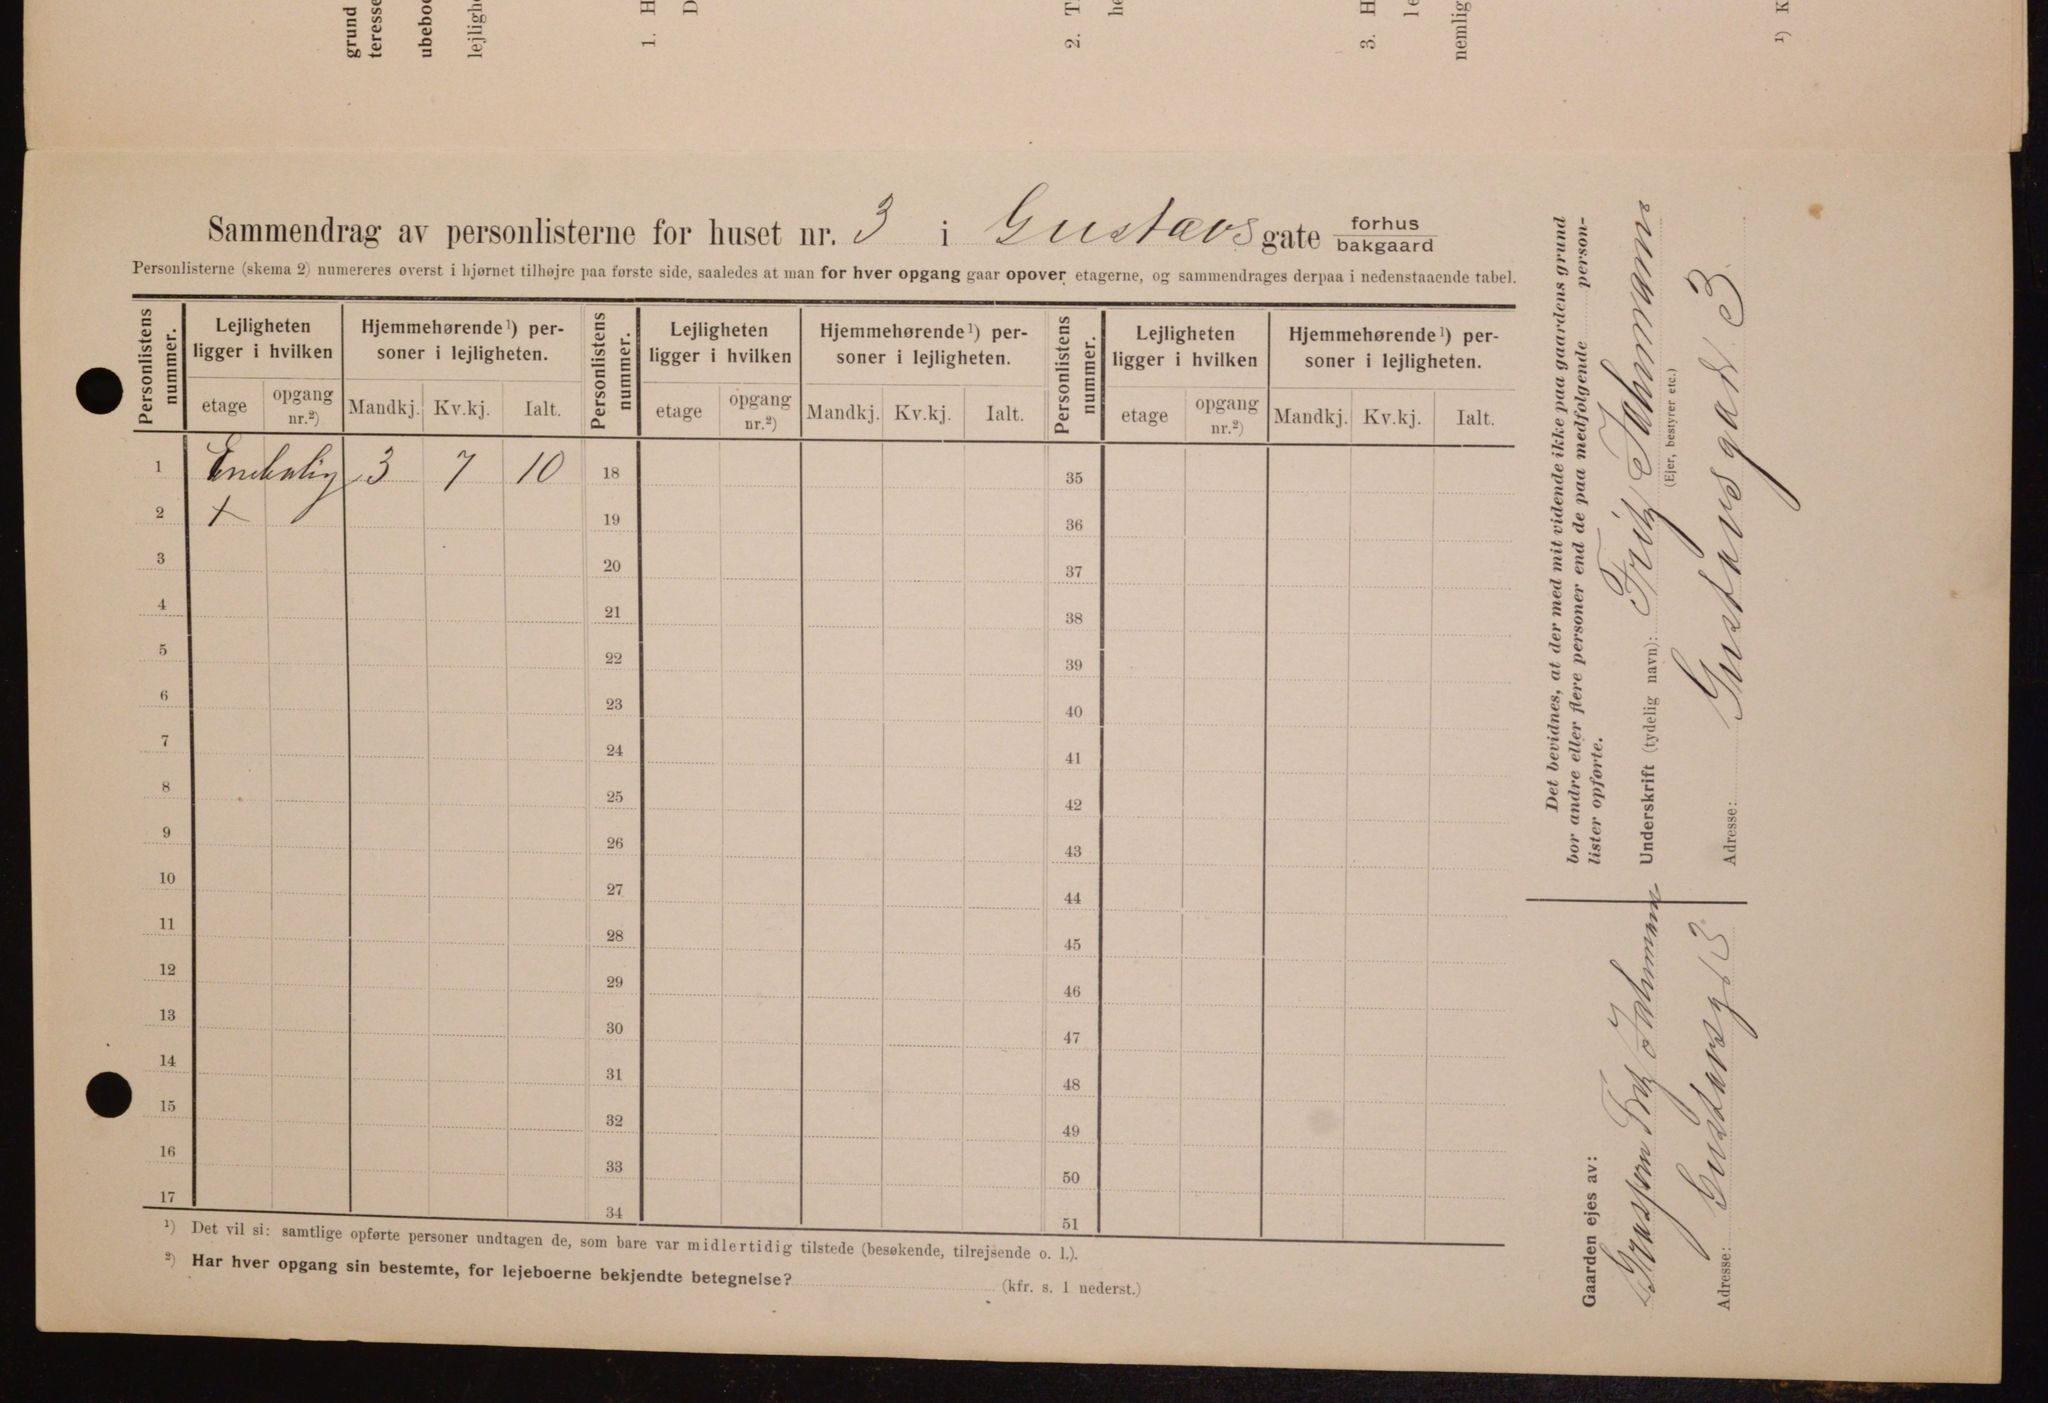 grund
teresse
ubeboe
lejlighe
1. H
D
2. T
he
3. H
le
nemlig
1) K
Sammendrag av personlisterne for huset nr. 3 i Gustavs gate forhus
bakgaard
Personlisterne (skema 2) numereres øverst i hjørnet tilhøjre paa første side, saaledes at man for hver opgang gaar opover etagerne, og sammendrages derpaa i nedenstaaende tabel.
Personlistens nummer. Lejligheten ligger i hvilken Hjemmehørende 1) per-soner i lejligheten. Personlistens nummer. Lejligheten ligger i hvilken Hjemmehørende 1) per-soner i lejligheten. Personlistens nummer. Lejligheten ligger i hvilken Hjemmehørende 1) per-soner i lejligheten.
etage opgang nr. 2) Mandkj. Kv.kj. Ialt. etage opgang nr. 2) Mandkj. Kv.kj. Ialt. etage opgang nr. 2) Mandkj. Kv.kj. Ialt.
1 Enebolig 3 7 10 18 35
2 + 19 36
3 20 37
4 21 38
5 22 39
6 23 40
7 24 41
8 25 42
9 26 43
10 27 44
11 28 45
12 29 46
13 30 47
14 31 48
15 32 49
16 33 50
17 34 51
1) Det vil si: samtlige opførte personer undtagen de, som bare var midlertidig tilstede (besøkende, tilrejsende o. l.).
2) Har hver opgang sin bestemte, for lejeboerne bekjendte betegnelse? (kfr. s. 1 nederst.)
Det bevidnes, at der med mit vidende ikke paa gaardens grund
bor andre eller flere personer end de paa medfølgende person-
lister opførte.
Underskrift (tydelig navn): Fritz Jahrmann
(Ejer, bestyrer etc.)
Adresse: Gustavsgade 3
Gaarden ejes av:
Fritz Jahrmann
Adresse: Gustavsg 3